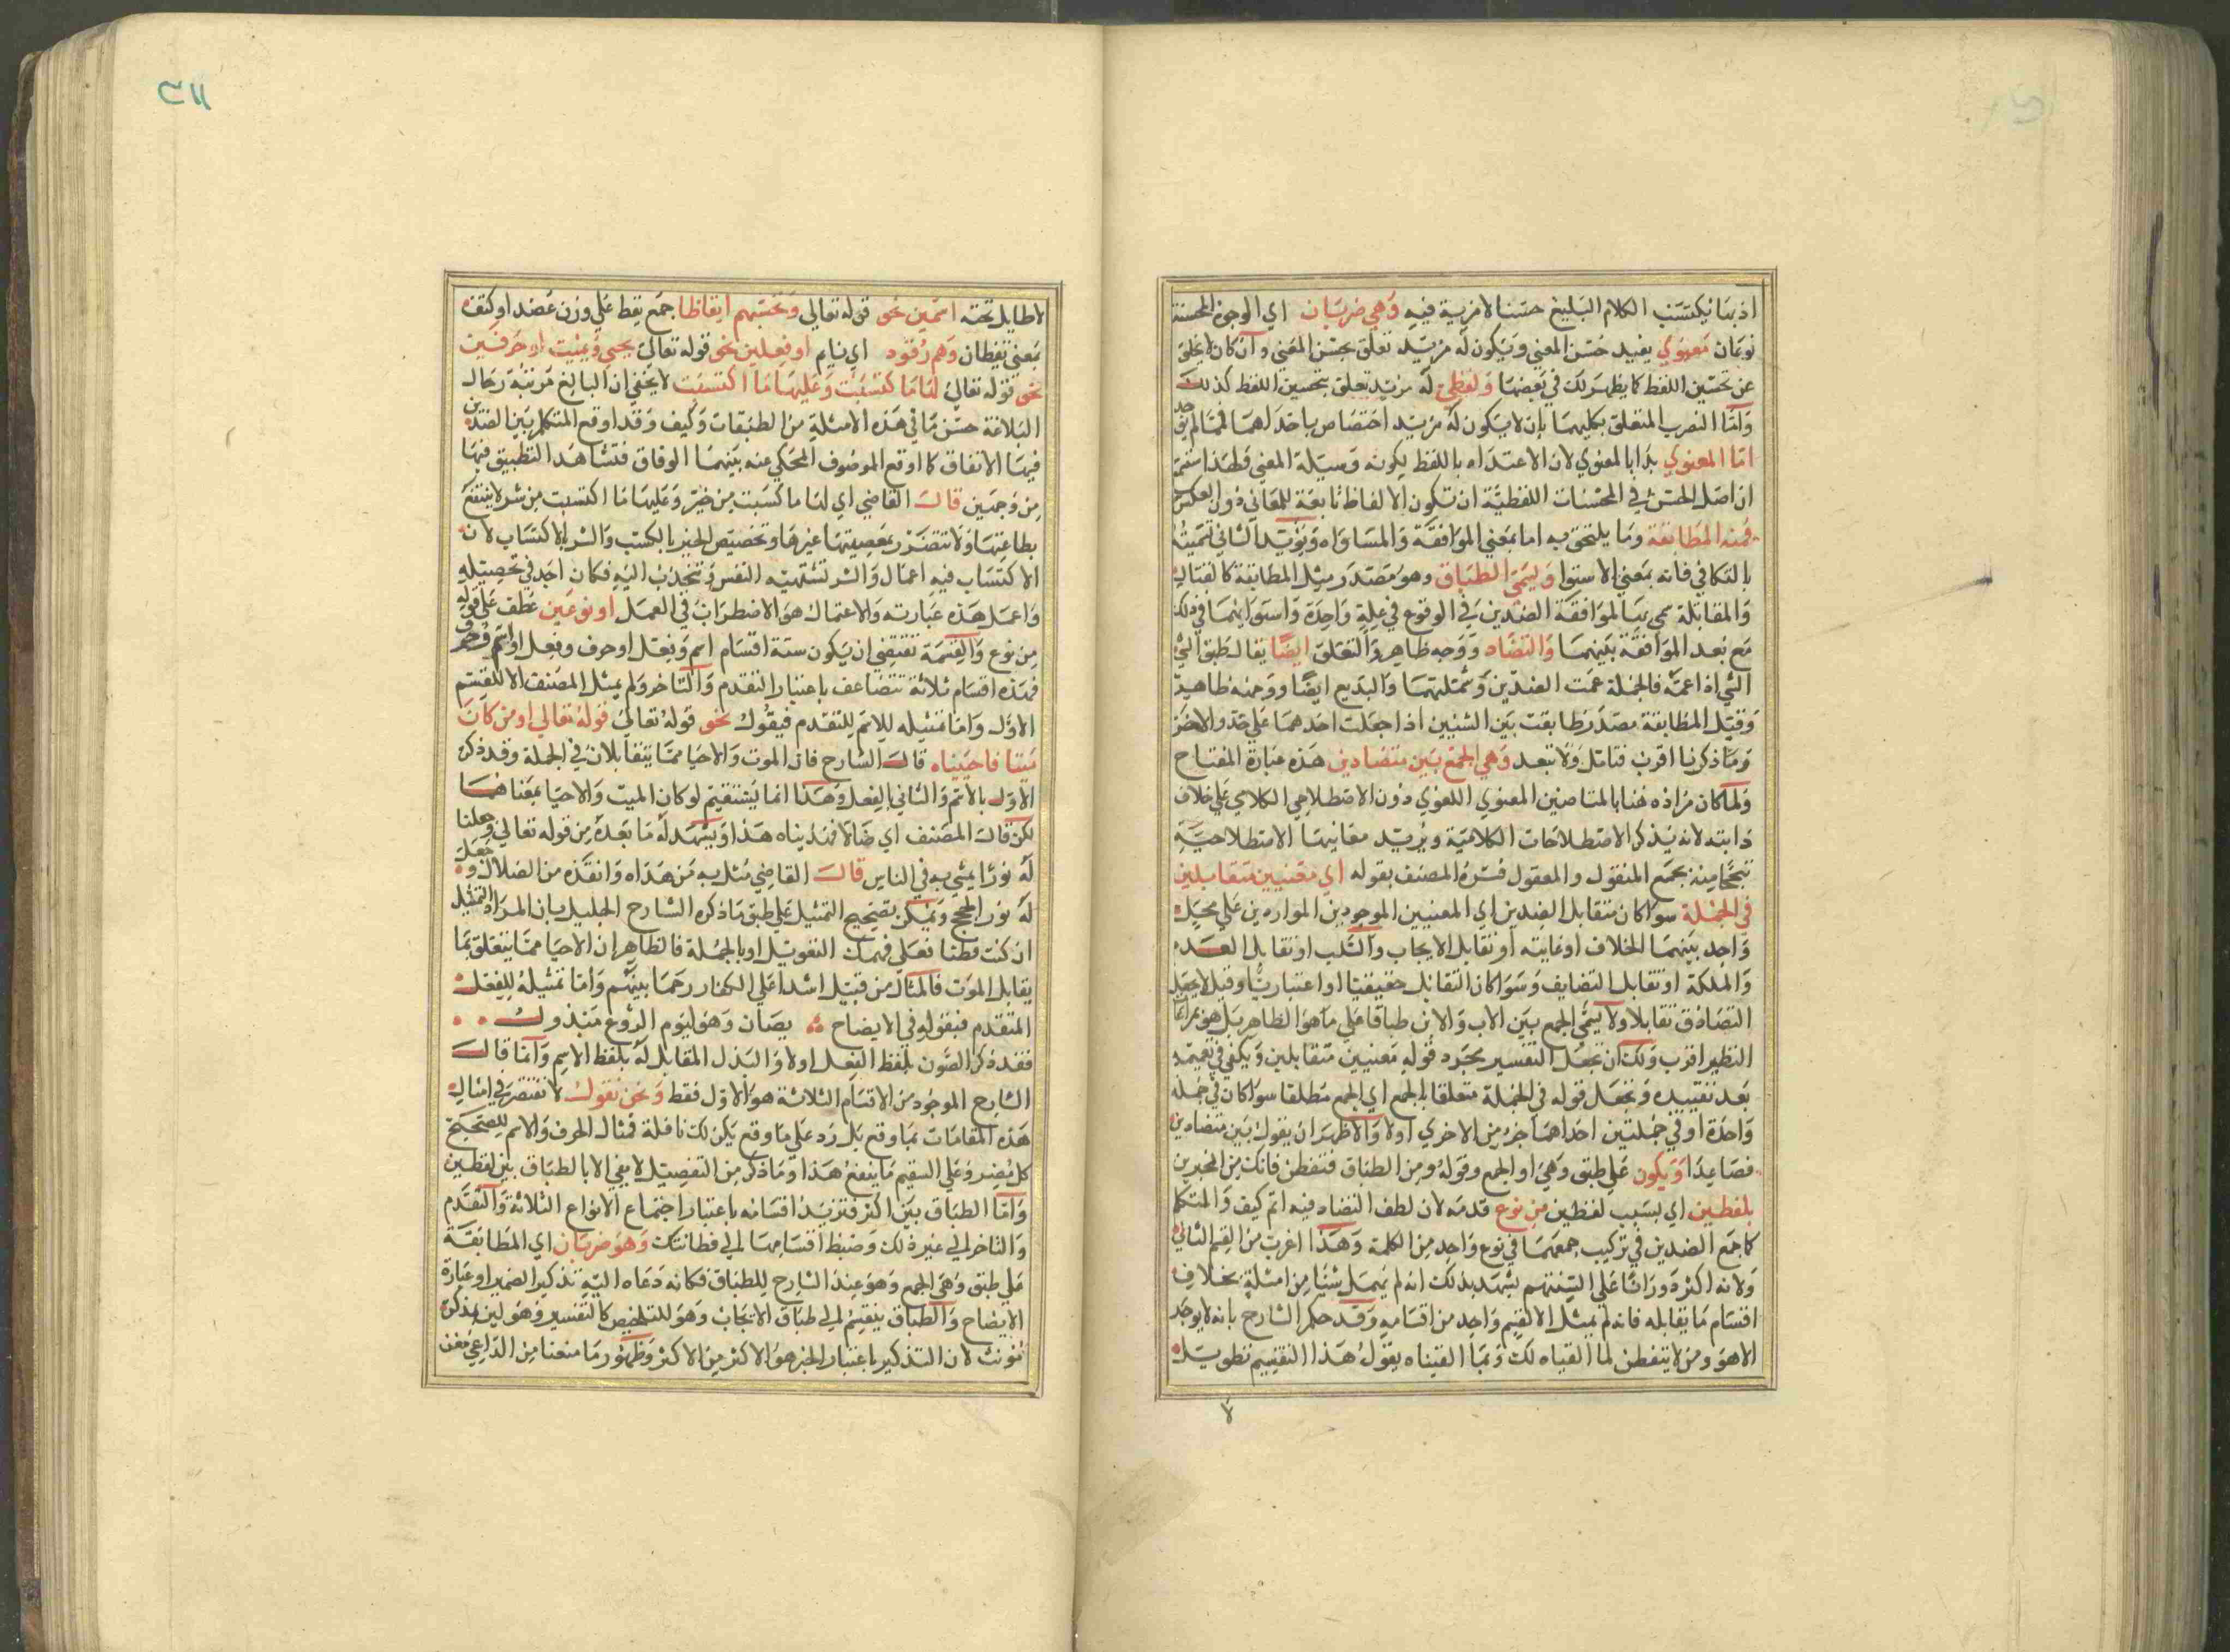 اذ بها يكتسب الكلام البليغ حسنا لا مزية فيه وهي ضربان اي الوجوه المحسنة
نوعان معنوي يفيد حسن المعني ويكون له مزيد تعلق بحسن المعني وان كان لا يخلو
عن تحسين اللفظ كما يظهر لك في بعضها ولفظي له مزيد تعلق بتحسين اللفظ كذلك
واما الضرب المتعلق بكليهما بان لا يكون له مزيد اختصاص باحدهما فمما لم يوجد
اما المعنوي بدا بالمعنوي لان الاعتداد باللفظ لكونه وسيلة المعني ولهذا استتم
ان اصل الحسن في المحسنات اللفظية ان تكون الالفاظ تابعة للمعاني دون العكس
فمنه المطابقة وما يلتحق به اما بمعني الموافقة والمساواه ويؤيد الثاني تسميته
بالتكافي فانه بمعني الاستوا وليسمي الطباق وهو مصدر مثل المطابقة كالقتال
والمقابلة سمي بها لموافقة الضدين في الوقوع في علة واحدة واستوايهما في ذلك
مع بعد الموافقة بينهما والتضاد ووجه ظاهر والتعلق ايضا يقال طبق الشي
الشي اذا عمه فالجملة عمت الضدين وشملتهما والبديع ايضا ووجهه ظاهر
وقيل المطابقة مصدر طابقت بين الشيين اذا جعلت احدهما علي حذو الاخر
وما ذكرنا اقرب فتامل ولا تبعد وهي الجمع بين متضادين هذه عبارة المفتاح
ولما كان مراده هنا بالمتضادين المعنوي اللغوي دون الاصطلاحي الكلامي علي خلاف
دابته لانه يذكر الاصطلاحات الكلامية ويريد معانيها الاصطلاحية
تبجحا منه بجمع المنقول والمعقول فسره المصنف بقوله اي معنيين متقابلين
في الجملة سوا كان متقابل الضدين اي المعنيين الموجودين المواردين علي محل
واحد بينهما الخلاف او غايته او تقابل الايجاب والسلب او تقابل العدم
والملكة او تقابل التضايف وسوا كان التقابل حقيقيا او اعتباريا وقيل لا يجعل
التضايف تقابلا ولا يسمي الجمع بين الاب والابن طباقا علي ما هو الظاهر بل هو مراعاة
النظير اقرب ولك ان تجعل التفسير مجرد قوله معنيين متقابلين ويكفي في تعميمه
بعد تقييده وتجعل قوله في الجملة متعلقا بالجمع اي الجمع مطلقا سوا كان في جملة
واحدة او في جملتين احداهما جزء من الاخري اولا والاظهر ان يقول بين متضادين
فصاعدا ويكون علي طبق وهي او الجمع وقوله ومن الطباق فتفطن فانك من المخبرين
بلفظين اي بسبب لفظين من نوع قدمه لان لطف التضاد فيه اتم كيف والمتكلم
كما جمع الضدين في تركيب جمعهما في نوع واحد من الكلمة وهذا اغرب من القسم الثاني
ولانه اكثر دورانا علي السنتهم يشهد بذلك انه لم يهمل شيا من امثلته بخلاف
اقسام ما يقابله فانه لم يمثل الا لقسم واحد من اقسامه وقد حكم الشارح بانه لا يوجد
الا هو ومن لا يتفطن لما القيناه لك وبما القيناه يقول هذا التقسيم تطويل
لا
٣١١
لا طايل تحته اسمين نحو قوله تعالي وتحسبهم ايقاظا جمع يقظ علي وزن عضد او كتف
بمعني يقظان وهم رقود اي نيام او فعلين نحو قوله تعالي يحيي ويميت او حرفين
نحو قوله تعالي لها ما كسبت وعليها ما اكتسبت لا يخفي ان البالغ مرتبة رجال
البلاغة حسن ما في هذه الامثلة من الطبقات وكيف وقد اوقع المتكلم بين الضدين
فيها الاتفاق كما اوقع الموصوف المحكي عنه بينهما الوفاق فتشاهد التطبيق فيها
من وجهين قال القاضي اي لها ما كسبت من خير وعليها ما اكتسبت من شر لا ينتفع
بطاعتها ولا تتضرر بمعصيتها غيرها وتخصيص الخير بالكسب والشر بالاكتساب لان
الاكتساب فيه اعتمال والشر تشتهيه النفس وتنجذب اليه فكان اجد في تحصيله
واعمل هذه عبارته والاعتمال هو الاضطراب في العمل او نوعين عطف علي قوله
من نوع والقسمة تقتضي ان يكون ستة اقسام اسم وفعل او حرف وفعل او اسم وحرف
فهذه اقسام ثلاثة تتضاعف باعتبار التقدم والتاخر ولم يمثل المصنف الا للقسم
الاول واما تمثيله للاسم المتقدم فيقول نحو قوله تعالي قوله تعالي او من كان
ميتا فاحييناه قال الشارح فان الموت والاحيا مما يتقابلان في الجملة وقد ذكر
الاول بالاسم والثاني بالفعل وهذا انما يستقيم لو كان الميت والاحيا بمعناهما
لكن قال المصنف اي ضالا فهديناه هذا ويشهد له ما بعده من قوله تعالي وجعلنا
له نورا يمشي به في الناس قال القاضي مثل به من هداه وانقذه من الضلال وجعل
له نور الحجج ويمكن تصحيح التمثيل علي طبق ما ذكره الشارح الجليل بان المراد التمثيل
ان كنت فطنا فعلي فهمك التعويل او بالجملة فالظاهر ان الاحيا مما يتعلق بما
يقابل الموت فالمثال من قبيل اشدا علي الكفار رحما بينهم واما تمثيله للفعل
المتقدم فبقوله في الايضاح يصان وهو ليوم الروع مبذول
فقد ذكر الصون بلفظ الفعل اولا والبذل المقابل له بلفظ الاسم وانما قال
الشارح الموجود من الاقسام الثلاثة هو الاول فقط ونحن نقول لا نقتصر في امثال
هذه المقامات بما وقع بل زد علي ما وقع يكن لك نافلة فمثال الحرف والاسم للصحيح
كل يضر وعلي السقيم ما ينفع هذا وما ذكر من التفصيل لا يفي الا بالطباق بين لفظين
واما الطباق بين اكثر فتزيد اقسامه باعتبار اجتماع الانواع الثلاثة والتقدم
والتاخر الي غير ذلك وضبط اقسامها الي فطانتك وهو ضربان اي المطابقة
علي طبق وهي الجمع وهو عند الشارح للطباق فكانه دعاه اليه تذكير الضمير او عبارة
الايضاح والطباق ينقسم الي طباق الايجاب وهو للتلخيص كالتفسير وهو ليس بمذكر
مؤنث لان التذكير باعتبار الخبر هو الاكثر من الاكثر وظهور ما منعنا من الداعي مغن